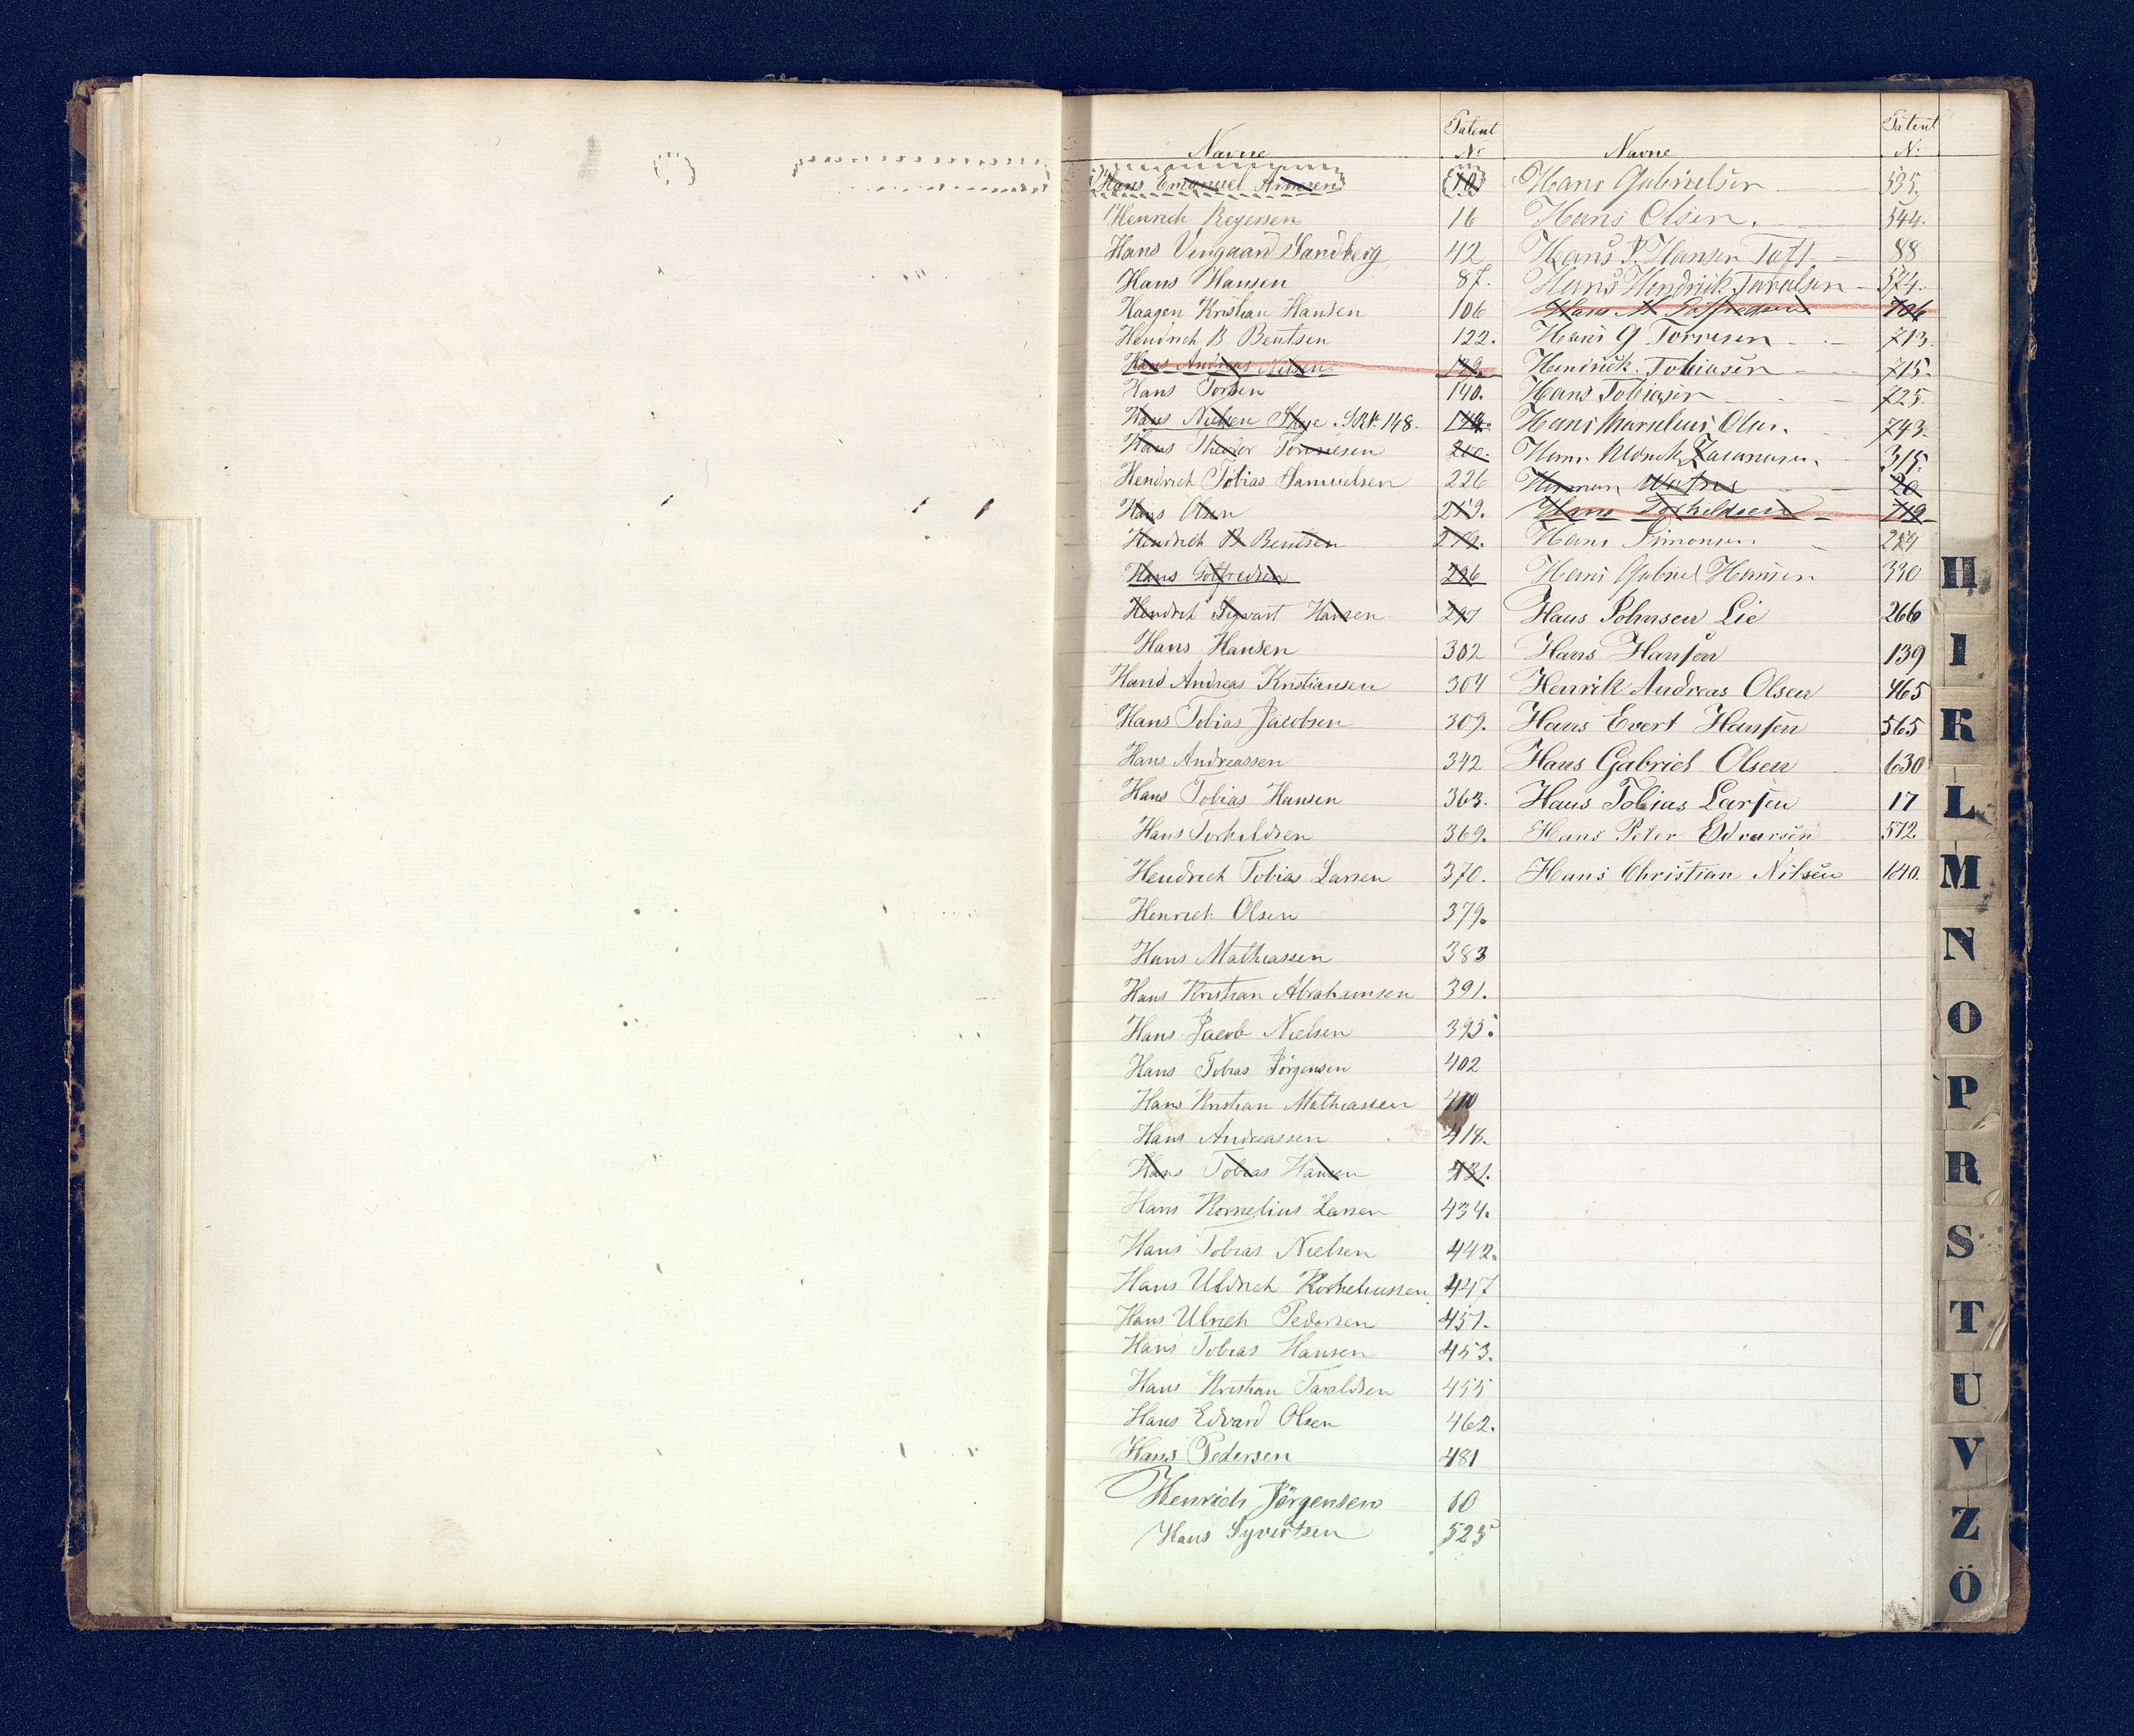 Navne Patent Nr
Hans Emanuel Arnesen 10
Henrich Regersen 16
Hans Vingaard Sandberg 42
Hans Hansen 87.
Haagen Kristian Hansen 106
Hendrich B Bentsen 122.
Hans Andreas Nilsen 139.
Hans Torsen 140.
Hans Nielsen 148.
Hans Theodor Tønnesen 210.
Hendrich Tobias Samuelsen 226
Hans Olsen 259.
Hendrich B Bentsen 279.
Hans Gotfredsen 296
Hendrich Syvart Hansen 297
Hans Hansen 302
Hans Andreas Kristiansen 304
Hans Tobias Jacobsen 309.
Hans Andreassen 342
Hans Tobias Hansen 363.
Hans Torkildsen 369.
Hendrich Tobias Larsen 370.
Henrich Olsen 379.
Hans Mathiassen 383
Hans Kristian Abrahamsen 391.
Hans Jacob Nielsen 395.
Hans Tobias Jörgensen 402
Hans Kristian Mathiassen 410
Hans Andreassen 418.
Hans Tobias Hansen 431.
Hans Kornelius Larsen 434.
Hans Tobias Nielsen 442.
Hans Uldrich Korneliussen 447
Hans Ulrich Pedersen 451.
Hans Tobias Hansen 453.
Hans Kristian Taraldsen 455
Hans Edvard Olsen 462.
Hans Pedersen 481
Henrich Jörgensen 60
Hans Syvertsen 525
Navne Patent Nr
Hans Gabrielsen 535.
Hans Olsen. 544.
Hans P. Hansen Toft 88
Hans Hendrick Taralsen 574.
Hans M Gotfredsen 706
Hans G Torresen 713.
Hendrick Tobiasen 715.
Hans Tobiasen 725
Hans Marselius Olsen. 743.
Hans Uldrick Zacariasen 315.
Herman Watne 20
Hans Torkeldsen 719
Hans Simonsen 254
Hans Gabriel Hansen 330
Hans Johnsen Lie 266
Hans Hansen 139
Henrik Andreas Olsen 465
Hans Evert Hansen 565
Hans Gabriel Olsen 630
Hans Tobias Larsen 17
Hans Peter Edvarsen 512
Hans Christian Nilsen 640.
H
I
K
L
M
N
O
P
R
S
T
U
V
Z
Ö